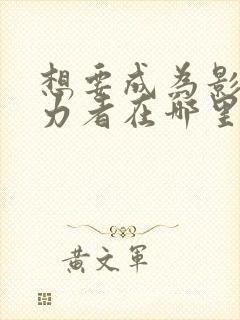 想要成为影
力者在哪里
黄文军